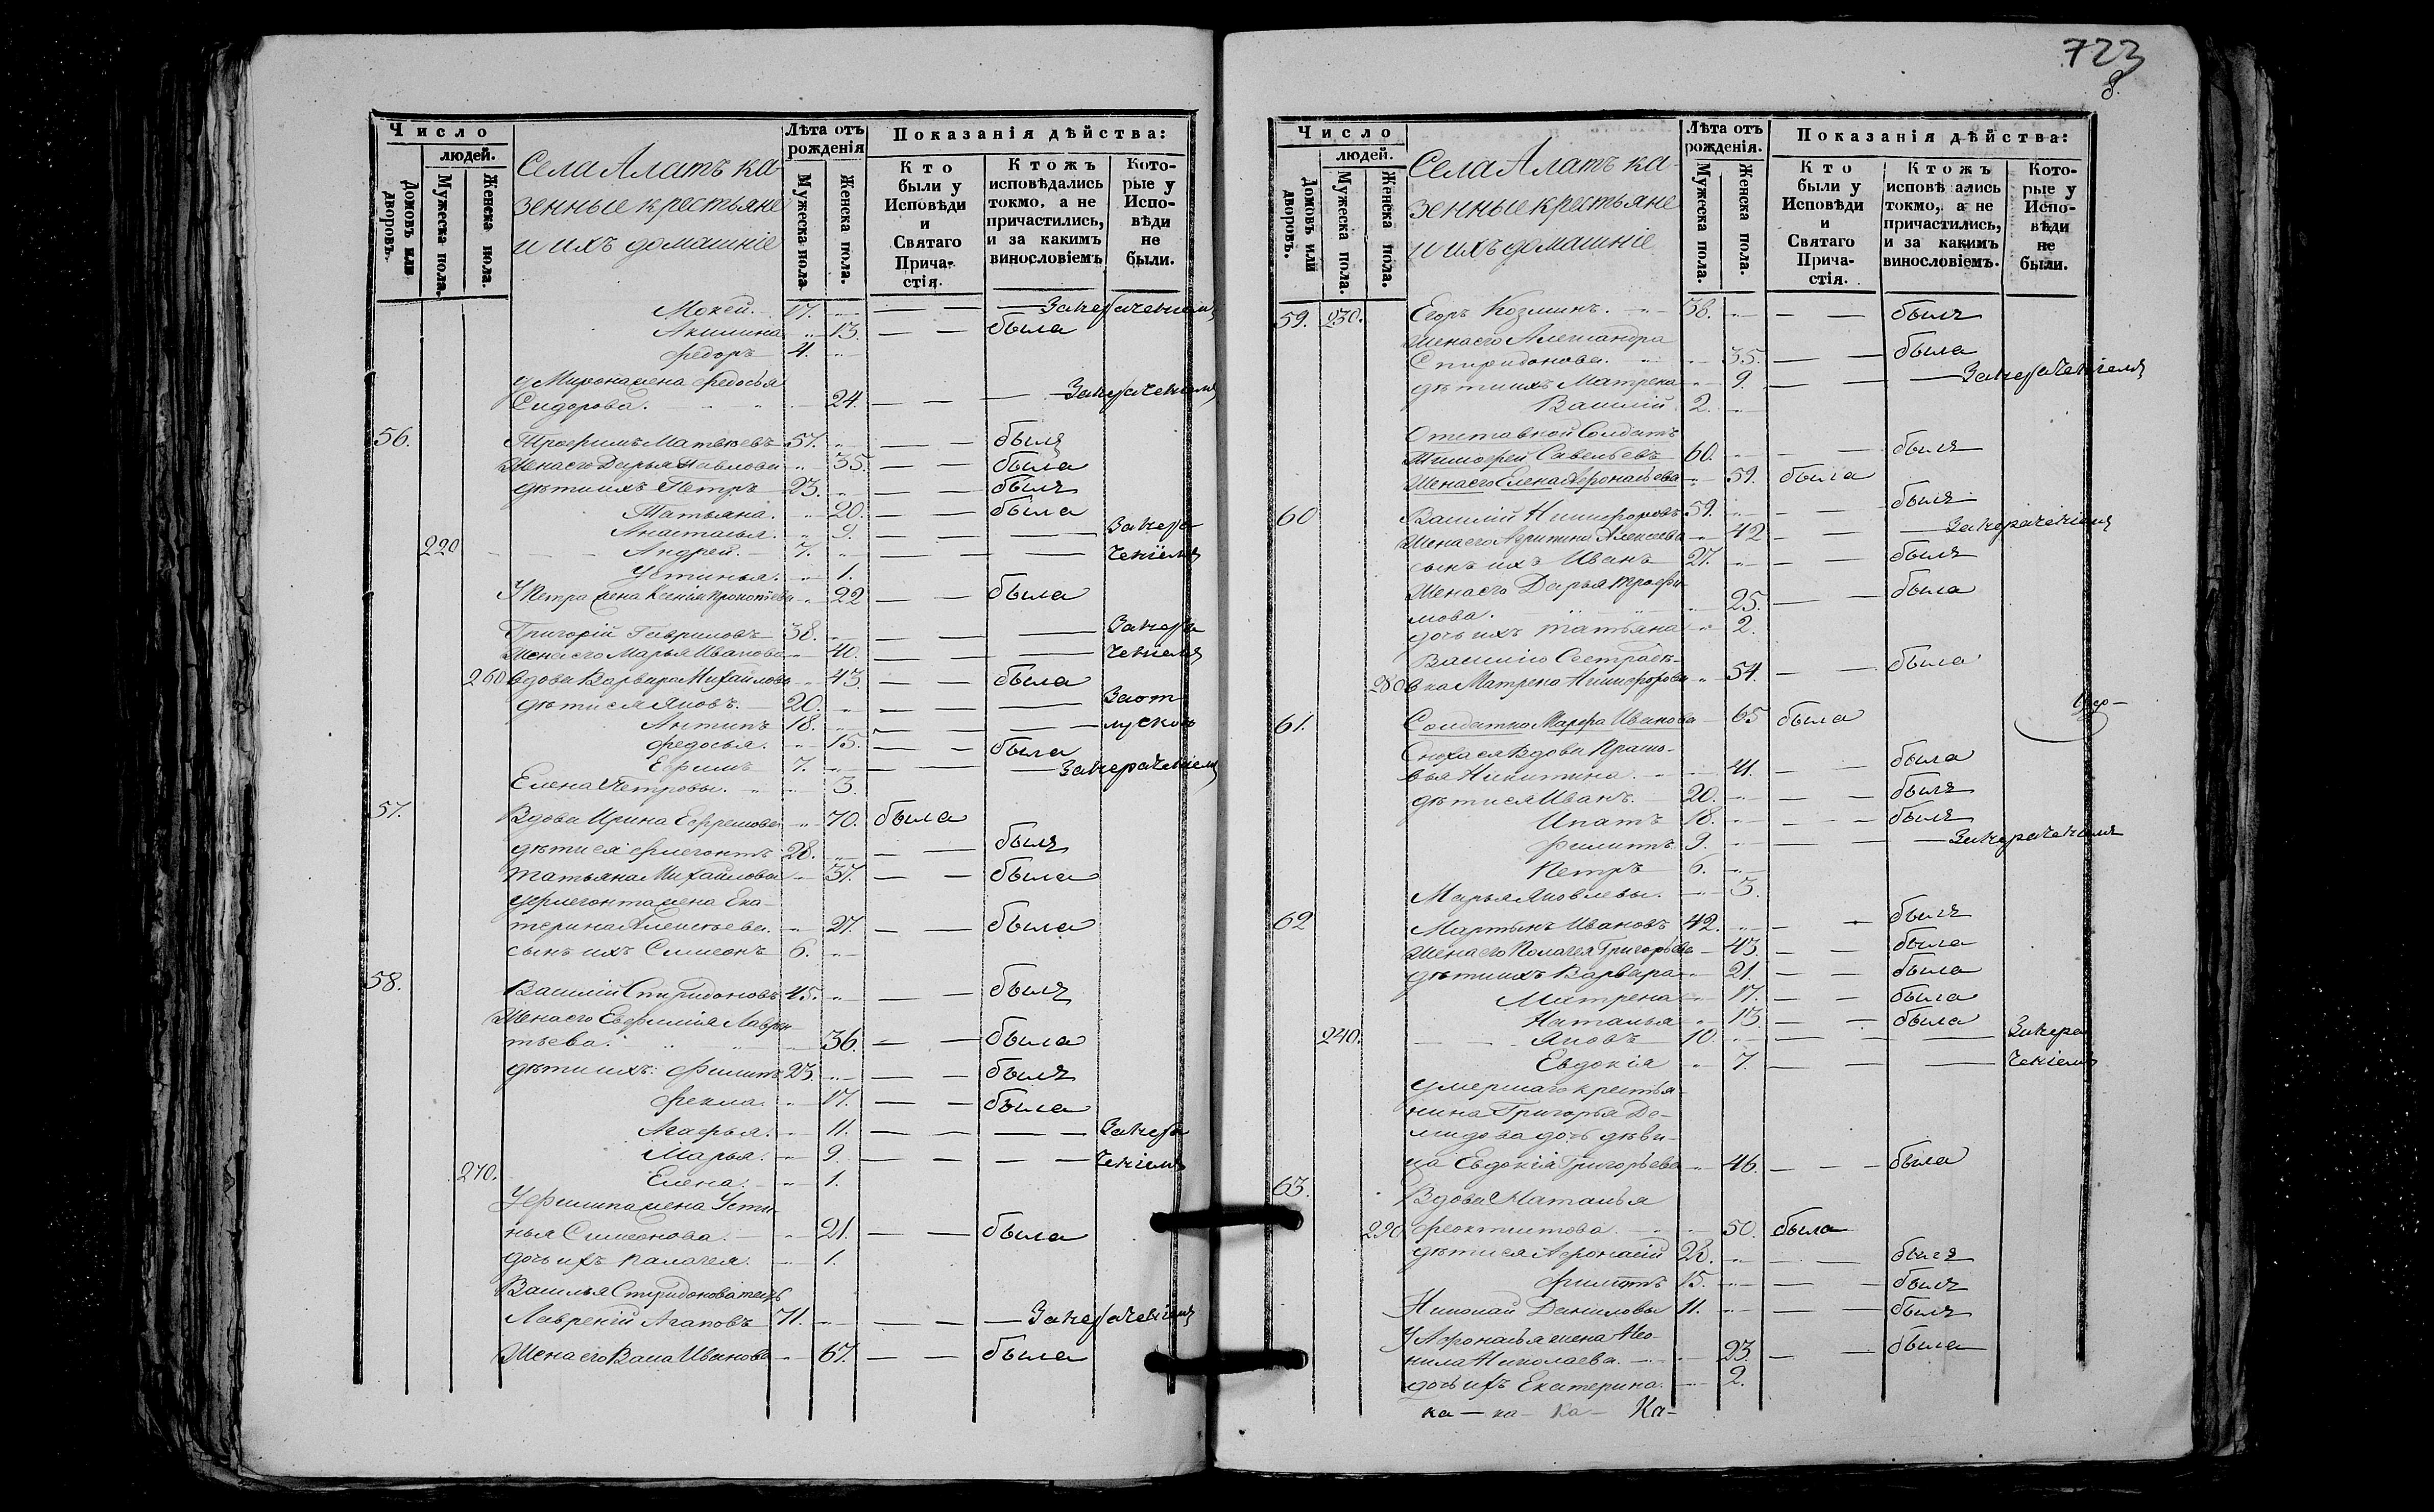 723
8.
Число
людей.
Домовъ или дворовъ.
Мужеска пола.
Женска пола.
Села Алатъ ка-
зенные крестьяне
и ихъ домашніе
Лѣта отъ рожденія
Мужеска пола
Женска пола.
Показанія дѣйства:
Кто были у Исповѣди и Святаго Прича-стія.
Ктожъ исповѣдались токмо, а не причастились, и за какимъ винословіемъ
Кото-рые у Испо-вѣди не были.
Мокей. 17. Занерачениемъ
Акилина 13. была
Федоръ 4.
у Мирона жена Федосья
Сидорова. 24. Занерачениемъ
56. Трофимъ Матвѣевъ 57. былъ
Жена его Дарья Павлова 35. была
дѣти ихъ Петръ 23. былъ
Татьяна. 20. была
Анастасья. 9. Занера
220 Андрей. 7. ченіемъ
Устинья. 1.
У Петра жена Ксенія Прокопьева 22 была
Григорій Гавриловъ 38. Занера
Жена его Марья Иванова 40. ченіемъ
260 вдова Варвара Михайлова 43. была
дѣти ея Яковъ. 20. Заот
Антипъ 18. лускою
Федосья. 15. была
Ефимъ 7. Занераченіемъ
Елена Петровы. 3.
57. Вдова Ирина Ефремова 70. была
дѣти ея Флегонтъ 28. былъ
Татьяна Михайлова 37. была
у Флегонта жена Ека-
терина Алексѣева. 27. была
сынъ ихъ Симеонъ 6.
58. Василій Спиридоновъ 45. былъ
Жена его Евфимія Лаврен-
тьева. 36. была
дѣти ихъ: Филипъ 23. былъ
Фекла. 17. была
Агафья. 11. Занера
Марья. 9. ченіемъ
270. Елена. 1.
У Филипа жена Усти-
нья Симеонова. 21. была
дочь ихъ Палагея. 1.
Василья Спиридонова тесть
Лаврентій Агаповъ 71. Занераченіемъ
Жена его Васа Иванова 67. была
Число
людей.
Домовъ или дворовъ.
Мужеска пола.
Женска пола.
Села Алатъ ка-
зенные крестьяне
и ихъ домашніе
Лѣта отъ рожденія.
Мужеска пола.
Женска пола.
Показанія дѣйства:
Кто были у Исповѣди и Святаго Прича-стія.
Ктожъ исповѣ ались токмо, а не причастились, и за какимъ винословіемъ.
Кото-рые у Испо-вѣди не были.
59. 230. Егоръ Козминъ. 38. былъ
Жена его Александра
Спиридонова. 35. была
дѣти ихъ Матрена 9. Занераченіемъ
Василій 2.
Отставной Солдатъ
Тимофей Савельевъ 60. былъ
Жена его Елена Афонасьева 59. была
60 Василій Никифоровъ 59. былъ
Жена его Агрипина Алексѣева 42 Занераченіемъ
сынъ ихъ Иванъ 27. былъ
Жена его Дарья Трофи-
мова. 25. была
дочь ихъ Татьяна 2.
Василію Сестра дѣ-
280 вка Матрена Никифорова 54. была
61. Солдатка Марфа Иванова 65 была
Сноха ея Вдова Праско-
вья Никитина. 41. была
дѣти ея Иванъ. 20. былъ
Ипатъ 18. былъ
Филипъ 9. Занераченіемъ
Петръ 6.
Марья Яковлевы. 3.
62 Мартынъ Ивановъ 42. былъ
Жена его Палагея Григорьева 43. была
дѣти ихъ Варвара 21. была
Матрена 17. была
Наталья 13. была
240. Яковъ 10. Занера
Евдокіа 7. ченіемъ
умершаго крестья-
нина Григорья Де-
мидова дочь дѣви-
ца Евдокія Григорьева 46. была
63. Вдова Наталья
290 Феоктистова. 50. была
дѣти ея Афонасій 28. былъ
Филипъ 15. былъ
Николай Даниловы 11. былъ
У Афонасья жена Нео-
нила Николаева. 23. была
дочь ихъ Екатерина. 2.
ка — ка — Ка — Ка-